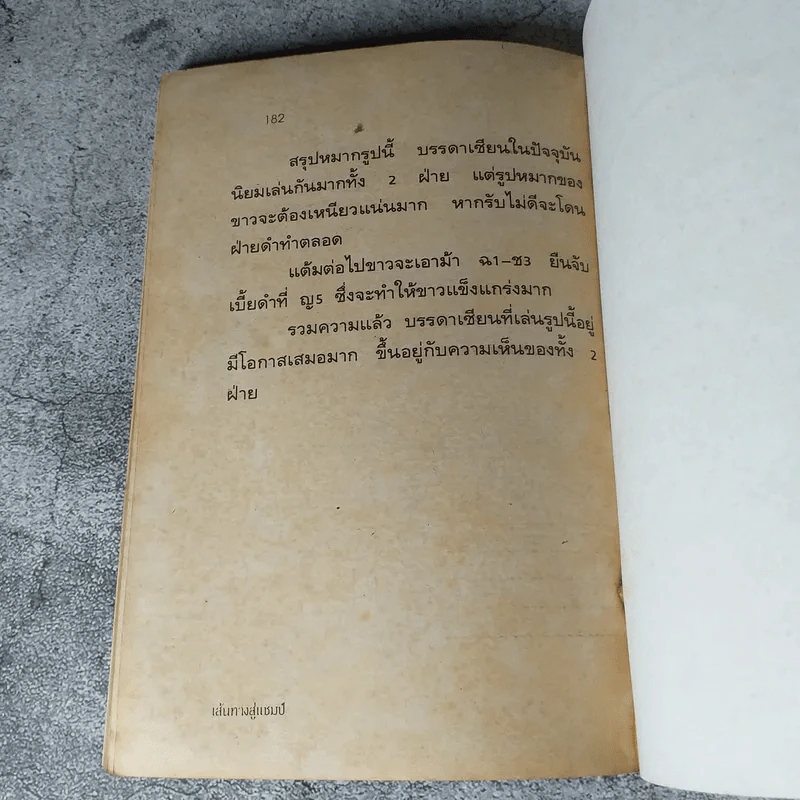 182
สรุปหมากรูปนี้ บรรดาเซียนในปัจจุบัน
นิยมเล่นกันมากทั้ง 2 ฝ่าย แต่รูปหมากของ
ขาวจะต้องเหนียวแน่นมาก หากรับไม่ดีจะโดน
ฝ่ายดำทำตลอด
แต้มต่อไปขาวจะเอาม้า ฉ1–ช3 ยืนจับ
เบี้ยดำที่ ญ5 ซึ่งจะทำให้ขาวแข็งแกร่งมาก
รวมความแล้ว บรรดาเซียนที่เล่นรูปนี้อยู่
มีโอกาสเสมอมาก ขึ้นอยู่กับความเห็นของทั้ง 2
ฝ่าย
เส้นทางสู่แชมป์